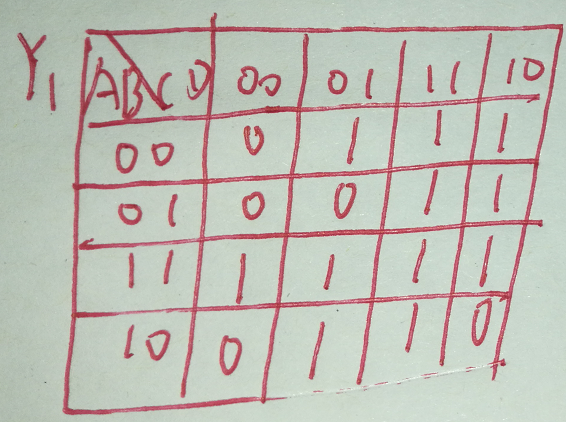 Y1 AB CD 00 01 11 10
00 0 1 1 1
01 0 0 1 1
11 1 1 1 1
10 0 1 1 0